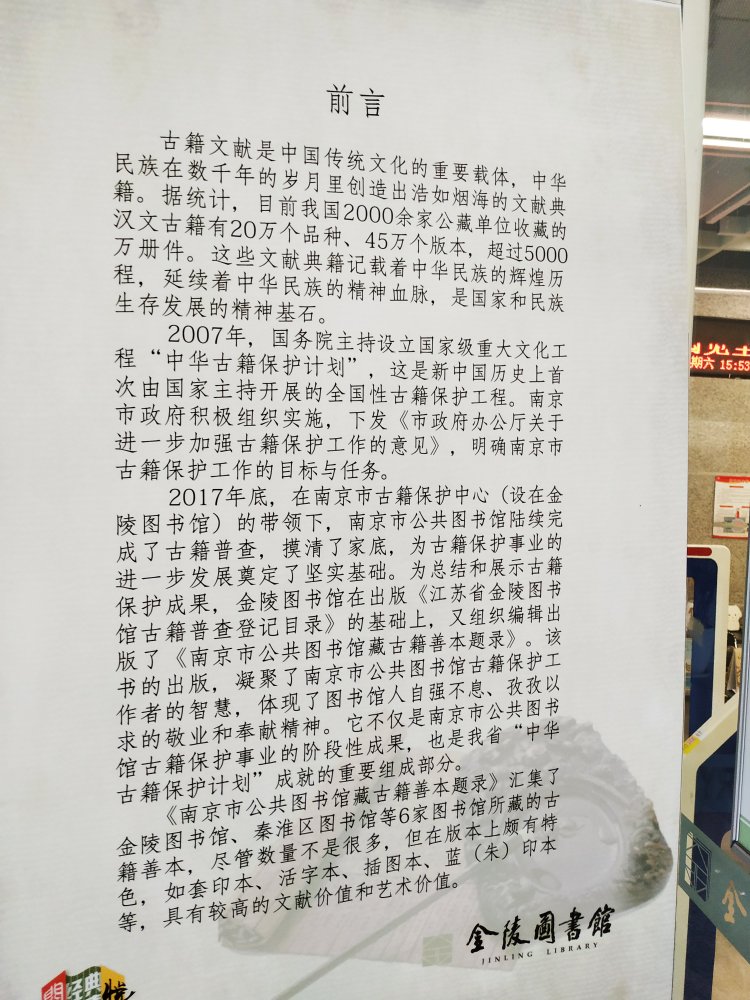 前言
古籍文献是中国传统文化的重要载体，中华
民族在数千年的岁月里创造出浩如烟海的文献典
籍。据统计，目前我国2000余家公藏单位收藏的
汉文古籍有20万个品种、45万个版本，超过5000
万册件。这些文献典籍记载着中华民族的辉煌历
程，延续着中华民族的精神血脉，是国家和民族
生存发展的精神基石。
2007年，国务院主持设立国家级重大文化工
程“中华古籍保护计划”，这是新中国历史上首
次由国家主持开展的全国性古籍保护工程。南京
市政府积极组织实施，下发《市政府办公厅关于
进一步加强古籍保护工作的意见》，明确南京市
古籍保护工作的目标与任务。
2017年底，在南京市古籍保护中心（设在金
陵图书馆）的带领下，南京市公共图书馆陆续完
成了古籍普查，摸清了家底，为古籍保护事业的
进一步发展奠定了坚实基础。为总结和展示古籍
保护成果，金陵图书馆在出版《江苏省金陵图书
馆古籍普查登记目录》的基础上，又组织编辑出
版了《南京市公共图书馆藏古籍善本题录》。该
书的出版，凝聚了南京市公共图书馆古籍保护工
作者的智慧，体现了图书馆人自强不息、孜孜以
求的敬业和奉献精神。它不仅是南京市公共图书
馆古籍保护事业的阶段性成果，也是我省“中华
古籍保护计划”成就的重要组成部分。
《南京市公共图书馆藏古籍善本题录》汇集了
金陵图书馆、秦淮区图书馆等6家图书馆所藏的古
籍善本，尽管数量不是很多，但在版本上颇有特
色，如套印本、活字本、插图本、蓝（朱）印本
等，具有较高的文献价值和艺术价值。
金陵圖書館
JINLING LIBRARY
期六 15:53
经典
金